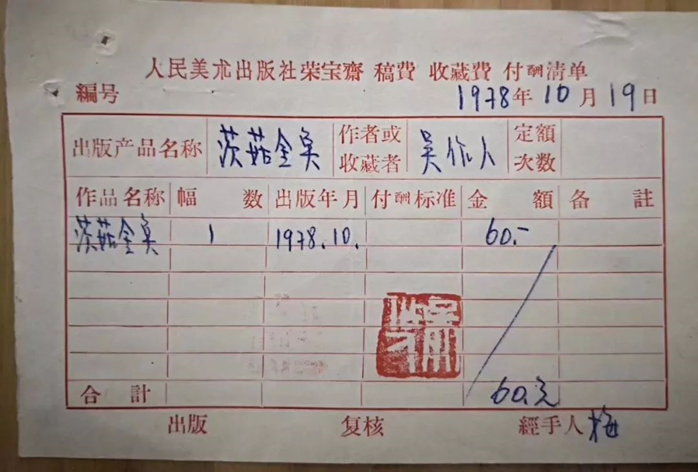 人民美朮出版社荣宝齋 稿費 收藏費 付酬清单
編号 1978年10月19日
出版产品名称 茨菇金鱼 作者或收藏者 吴作人 定額次数
作品名称 幅数 出版年月 付酬标准 金額 备註
茨菇金鱼 1 1978.10. 60.-
合計 60元
出版 复核 經手人 梅